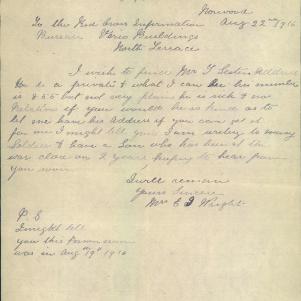 Norwood
Aug 22nd 1916
To the Red Cross Information
Bureau Verco Buildings
North Terrace
I wish to find Mr T Address
He is a private & what I can his number
is 455 but not very plain he is sick & one
Relations if you would be so kind as to
let me have his Address if you can get it
for me I might tell you I am writing to many
Soldiers & have a Son who has been at the
war close on 2 years hoping to hear from
you soon
I will remain
Yours Sincere
Mrs E J Wright
P. S
I might tell
you this
was in Aug 19th 1916